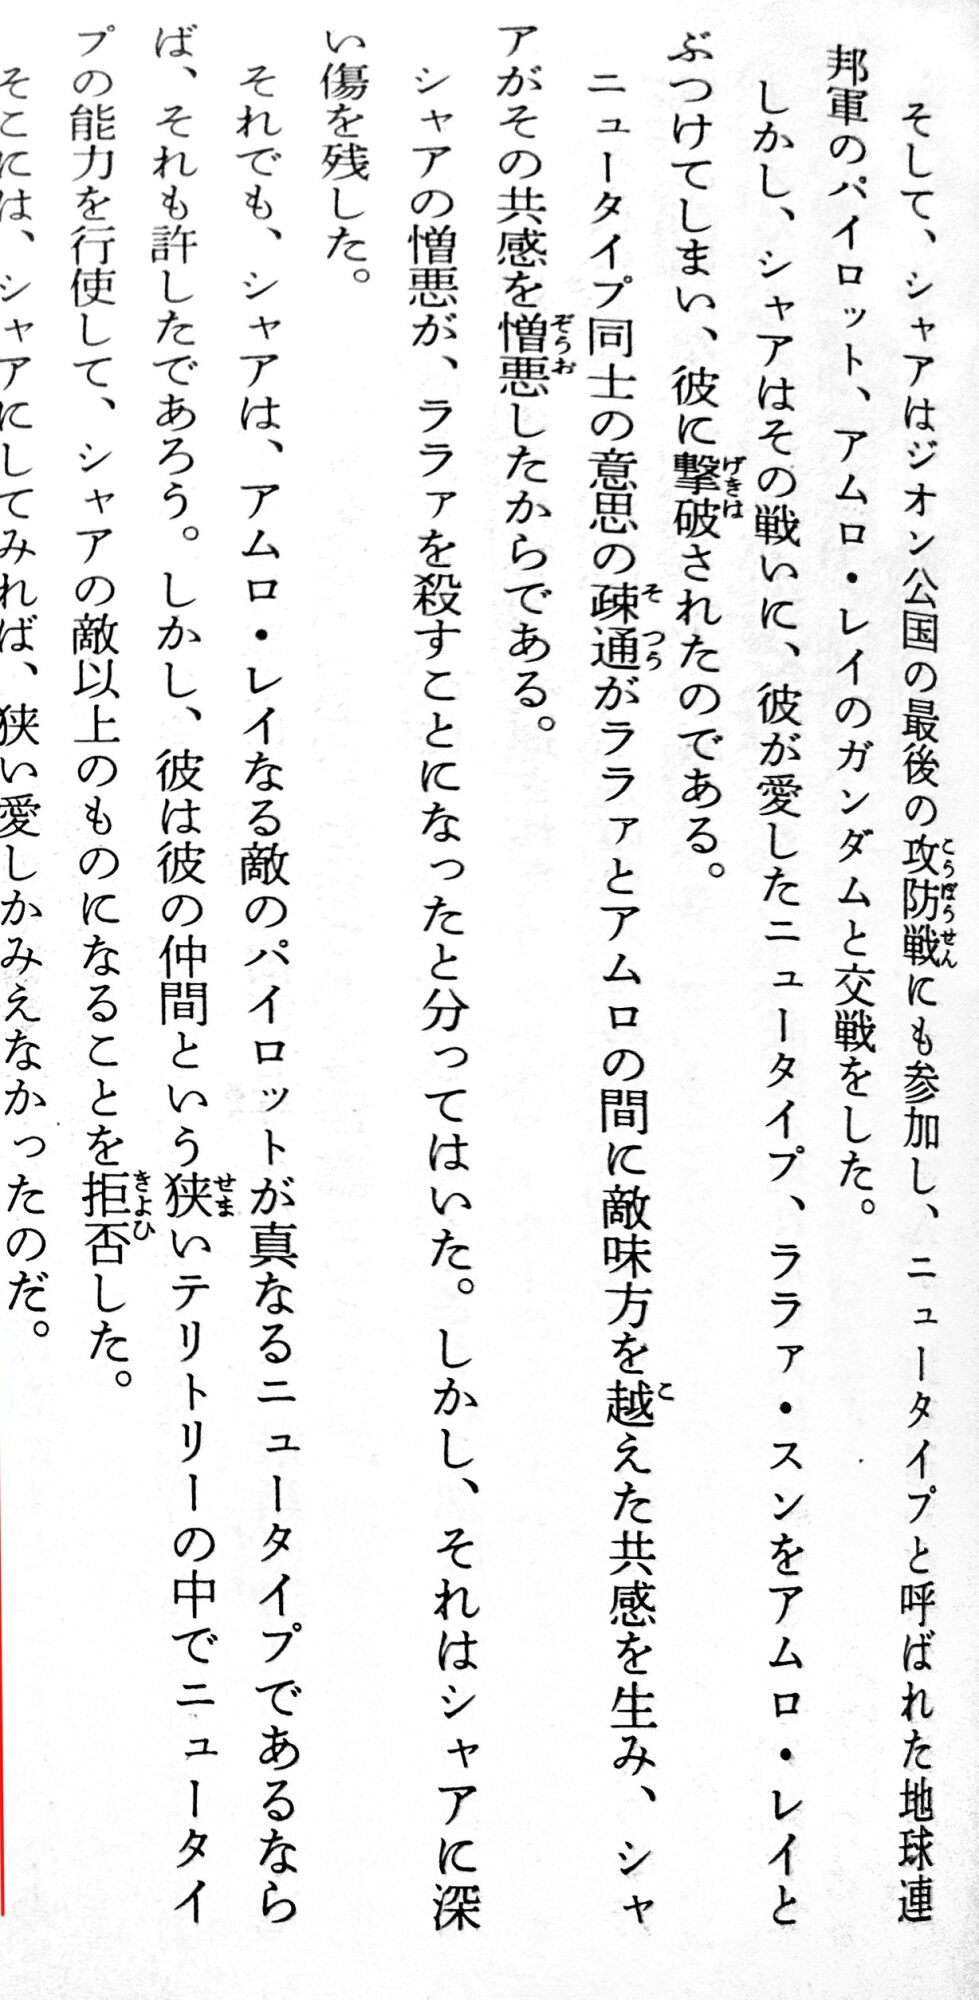 そして、シャアはジオン公国の最後の攻防戦にも参加し、ニュータイプと呼ばれた地球連
邦軍のパイロット、アムロ・レイのガンダムと交戦をした。
しかし、シャアはその戦いに、彼が愛したニュータイプ、ララァ・スンをアムロ・レイと
ぶつけてしまい、彼に撃破されたのである。
ニュータイプ同士の意思の疎通がララァとアムロの間に敵味方を越えた共感を生み、シャ
アがその共感を憎悪したからである。
シャアの憎悪が、ララァを殺すことになったと分ってはいた。しかし、それはシャアに深
い傷を残した。
それでも、シャアは、アムロ・レイなる敵のパイロットが真なるニュータイプであるなら
ば、それも許したであろう。しかし、彼は彼の仲間という狭いテリトリーの中でニュータイ
プの能力を行使して、シャアの敵以上のものになることを拒否した。
そこには、シャアにしてみれば、狭い愛しかみえなかったのだ。